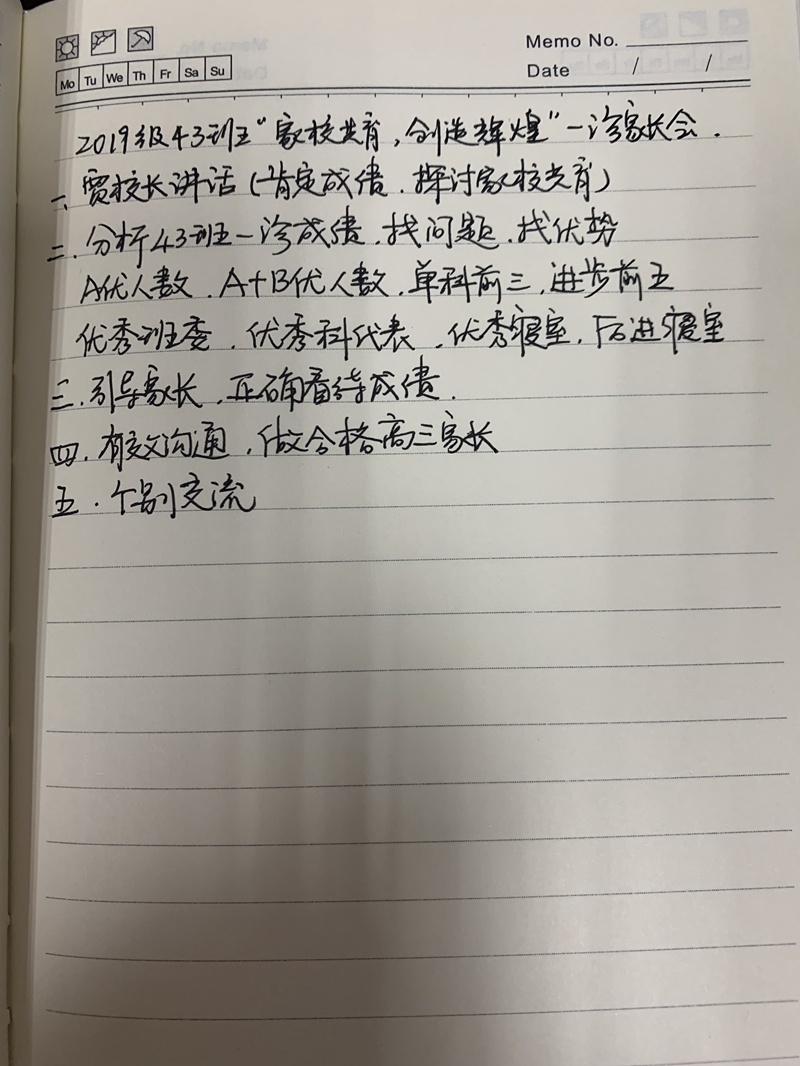 Memo No.
Mo Tu We Th Fr Sa Su
Date / /
2019级43班"家校共育,创造辉煌"一诊家长会.
一、贾校长讲话(肯定成绩.探讨家校共育)
二.分析43班一诊成绩.找问题.找优势
A优人数.A+B优人数.单科前三.进步前五
优秀班委.优秀科代表.优秀寝室.后进寝室
三.引导家长.正确看待成绩.
四.有效沟通.做合格高三家长
五.个别交流